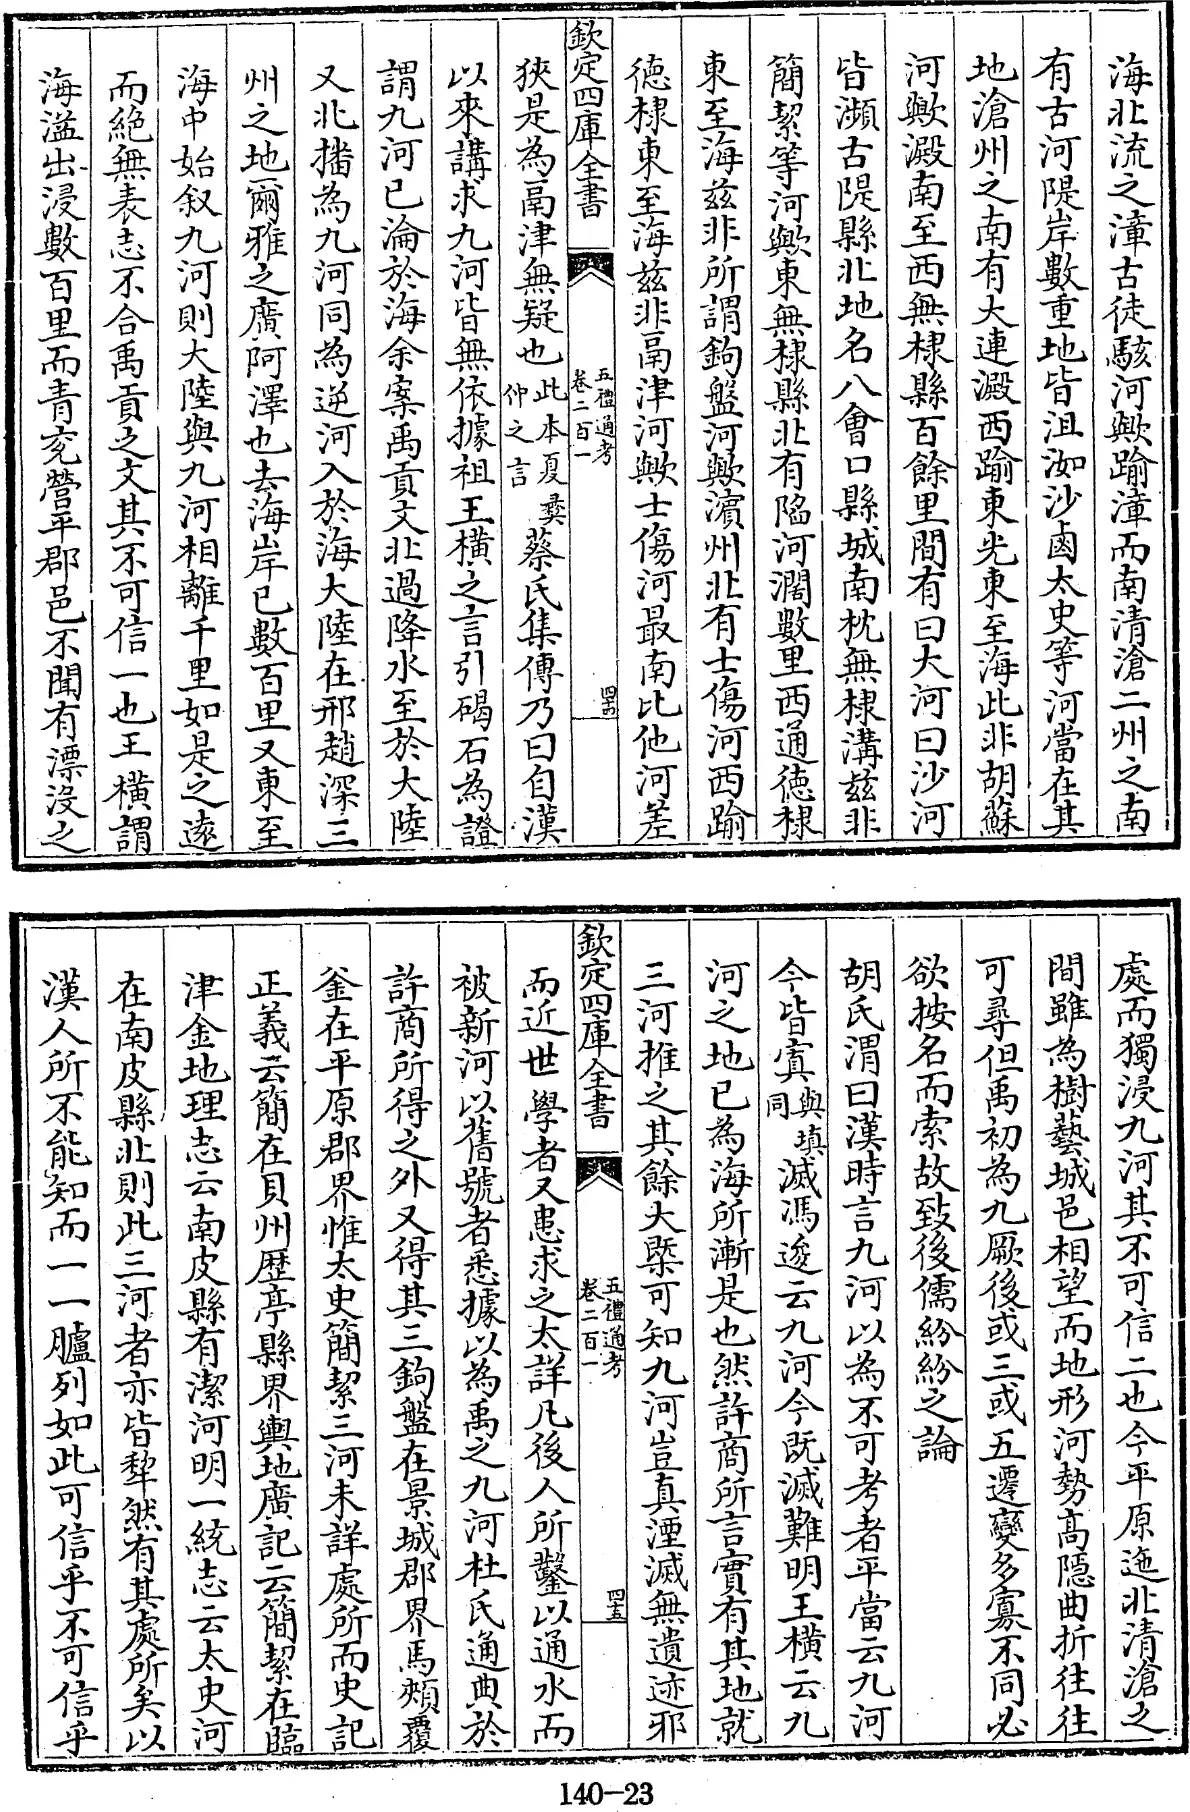 海北流之漳古徒駭河歟踰漳而南清滄二州之南
有古河隄岸數重地皆沮洳沙鹵太史等河當在其
地滄州之南有大連澱西踰東光東至海此非胡蘇
河歟澱南至西無棣縣百餘里間有曰大河曰沙河
皆瀕古隄縣北地名八會口縣城南枕無棣溝兹非
簡絜等河歟東無棣縣北有陷河濶數里西通徳棣
東至海兹非所謂鉤盤河歟濱州北有士傷河西踰
徳棣東至海兹非鬲津河歟士傷河最南比他河差
欽定四庫全書
五禮通考
卷二百一
四十四
狹是為鬲津無疑也此本夏彞仲之言蔡氏集傳乃曰自漢
以來講求九河皆無依據祖王横之言引碣石為證
謂九河已淪於海余案禹貢文北過降水至於大陸
又北播為九河同為逆河入於海大陸在邢趙深三
州之地爾雅之廣阿澤也去海岸已數百里又東至
海中始叙九河則大陸與九河相離千里如是之逺
而絶無表志不合禹貢之文其不可信一也王横謂
海溢出浸數百里而青兖營平郡邑不聞有漂沒之
處而獨浸九河其不可信二也今平原迤北清滄之
間雖為樹藝城邑相望而地形河勢高隱曲折往往
可尋但禹初為九厥後或三或五遷變多寡不同必
欲按名而索故致後儒紛紛之論
胡氏渭曰漢時言九河以為不可考者平當云九河
今皆寘與填同滅馮逡云九河今既滅難明王横云九
河之地已為海所漸是也然許商所言實有其地就
三河推之其餘大槩可知九河豈真湮滅無遺迹邪
欽定四庫全書
五禮通考
卷二百一
四十五
而近世學者又患求之太詳凡後人所鑿以通水而
被新河以舊號者悉據以為禹之九河杜氏通典於
許商所得之外又得其三鉤盤在景城郡界馬頰覆
釜在平原郡界惟太史簡絜三河未詳處所而史記
正義云簡在貝州歷亭縣界輿地廣記云簡絜在臨
津金地理志云南皮縣有潔河明一統志云太史河
在南皮縣北則此三河者亦皆犂然有其處所矣以
漢人所不能知而一一臚列如此可信乎不可信乎
140-23